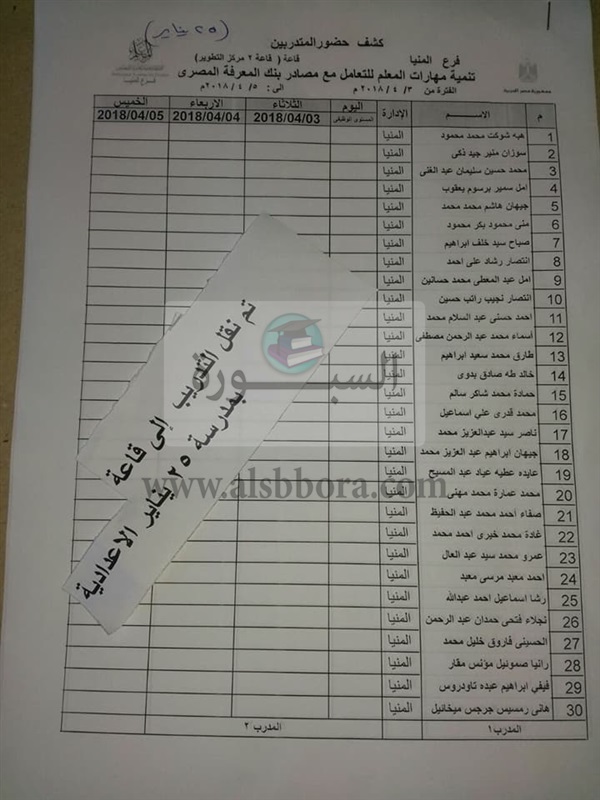 (٢٥ يناير)
كشف حضور المتدربين
فرع المنيا
قاعة ( قاعة ٢ مركز التطوير)
جمهورية مصر العربية
تنمية مهارات المعلم للتعامل مع مصادر بنك المعرفة المصرى
الفترة من ٣ / ٤ / ٢٠١٨م الى : ٥ / ٤ / ٢٠١٨م
م الاســـم الإدارة اليوم الثلاثاء الاربعاء الخميس
المستوى الوظيفى 2018/04/03 2018/04/04 2018/04/05
1 هبه شوكت محمد محمود المنيا
2 سوزان منير جيد ذكى المنيا
3 محمد حسين سليمان عبد الغنى المنيا
4 امل سمير برسوم يعقوب المنيا
5 جيهان هاشم محمد محمد المنيا
6 منى محمود بكر محمود المنيا
7 صباح سيد خلف ابراهيم المنيا
8 انتصار رشاد على احمد المنيا
9 امل عبد المعطى محمد حسانين المنيا
10 انتصار نجيب راتب حسين المنيا
11 احمد حسنى عبد السلام محمد المنيا
12 أسماء محمد عبد الرحمن مصطفى المنيا
13 طارق محمد سعيد ابراهيم المنيا
14 خالد طه صادق بدوى المنيا
15 حمادة محمد شاكر سالم المنيا
16 محمد قدرى على اسماعيل المنيا
17 ناصر سيد عبدالعزيز محمد المنيا
18 جيهان ابراهيم عبد العزيز محمد المنيا
19 عايده عطيه عياد عبد المسيح المنيا
20 محمد عمارة محمد مهنى المنيا
21 صفاء احمد محمد عبد الحفيظ المنيا
22 غادة محمد خيرى احمد محمد المنيا
23 عمرو محمد سيد عبد العال المنيا
24 احمد معبد مرسى معبد المنيا
25 رشا اسماعيل احمد عبدالله المنيا
26 نجلاء فتحى حمدان عبد الرحمن المنيا
27 الحسينى فاروق خليل محمد المنيا
28 رانيا صموئيل مؤنس مقار المنيا
29 فيفي ابراهيم عبده تاودروس المنيا
30 هانى رمسيس جرجس ميخائيل المنيا
المدرب ١ المدرب ٢
تم نقل التدريب إلى قاعة
بمدرسة ٢٥ يناير الاعدادية
السبورة
www.alsbbora.com